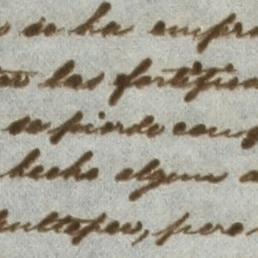 se ha empre
las fortifica
se pierde comp
hecho alguna a
pultepec, pero